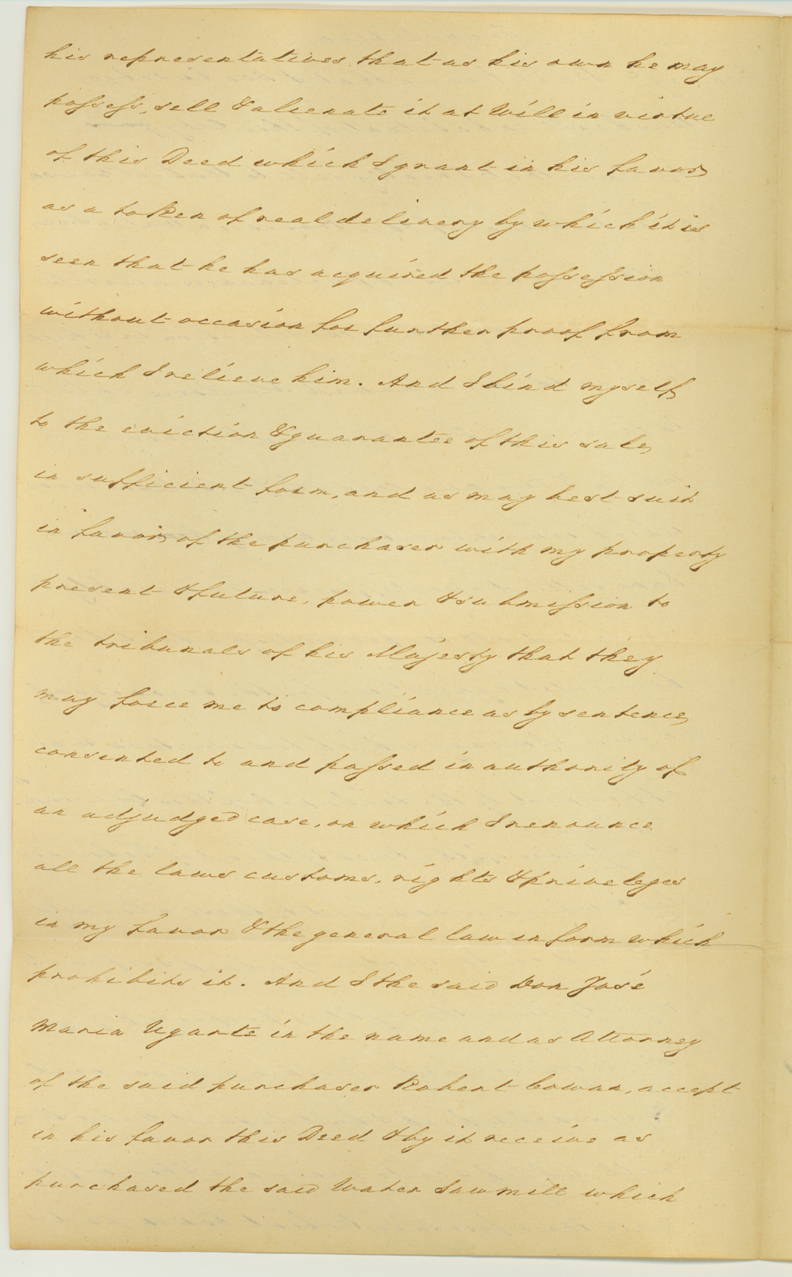 his representatives that as his own he may
possess, sell & alienate it at Will in virtue
of this Deed which I grant in his favor,
as a token of real delivery by which it is
seen that he has acquired the possession
without occasion for further proof from
which I relieve him. And I bind myself,
to the eviction & guarantee of this sale,
in sufficient form, and as may best suit
in favor, of the purchaser with my property
present & future, power & submission to
the tribunals of his Majesty that they
may force me to compliance as by sentence,
consented to and passed in authority of
an adjudged case, on which I renounce
all the laws customs, rights & priveleges
in my favor & the general law in form which
prohibits it. And I the said Don José
Maria Ugarte in the name and as Attorney
of the said purchaser Robert Cowan, accept
in his favor this Deed & by it receive as
purchased the said Water Saw mill which